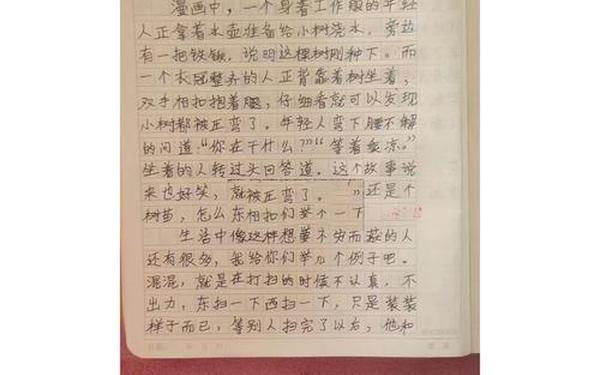 漫画中，一个身着工作服的年轻
人正拿着水壶准备给小树浇水，旁边
有一把铁锹，说明这棵树刚种下。而
一个衣冠整齐的人正背靠着树坐着，
双手相扣抱着腿，仔细看就可以发现
小树都被压弯了。年轻人弯下腰不解
的问道:“你在干什么?”“等着乘凉。”
坐着的人转过头回答道。这个故事说
来也好笑，就被压弯了。”还是个
树苗，怎么东相扣们举个一下
生活中像这样想董不劳而获的人
还有很多，我给你们举几个例子吧。
混混，就是在打扫的时候不认真，不
出力，东扫一下西扫一下，只是装装
样子而已，等别人扫完了以后，他和